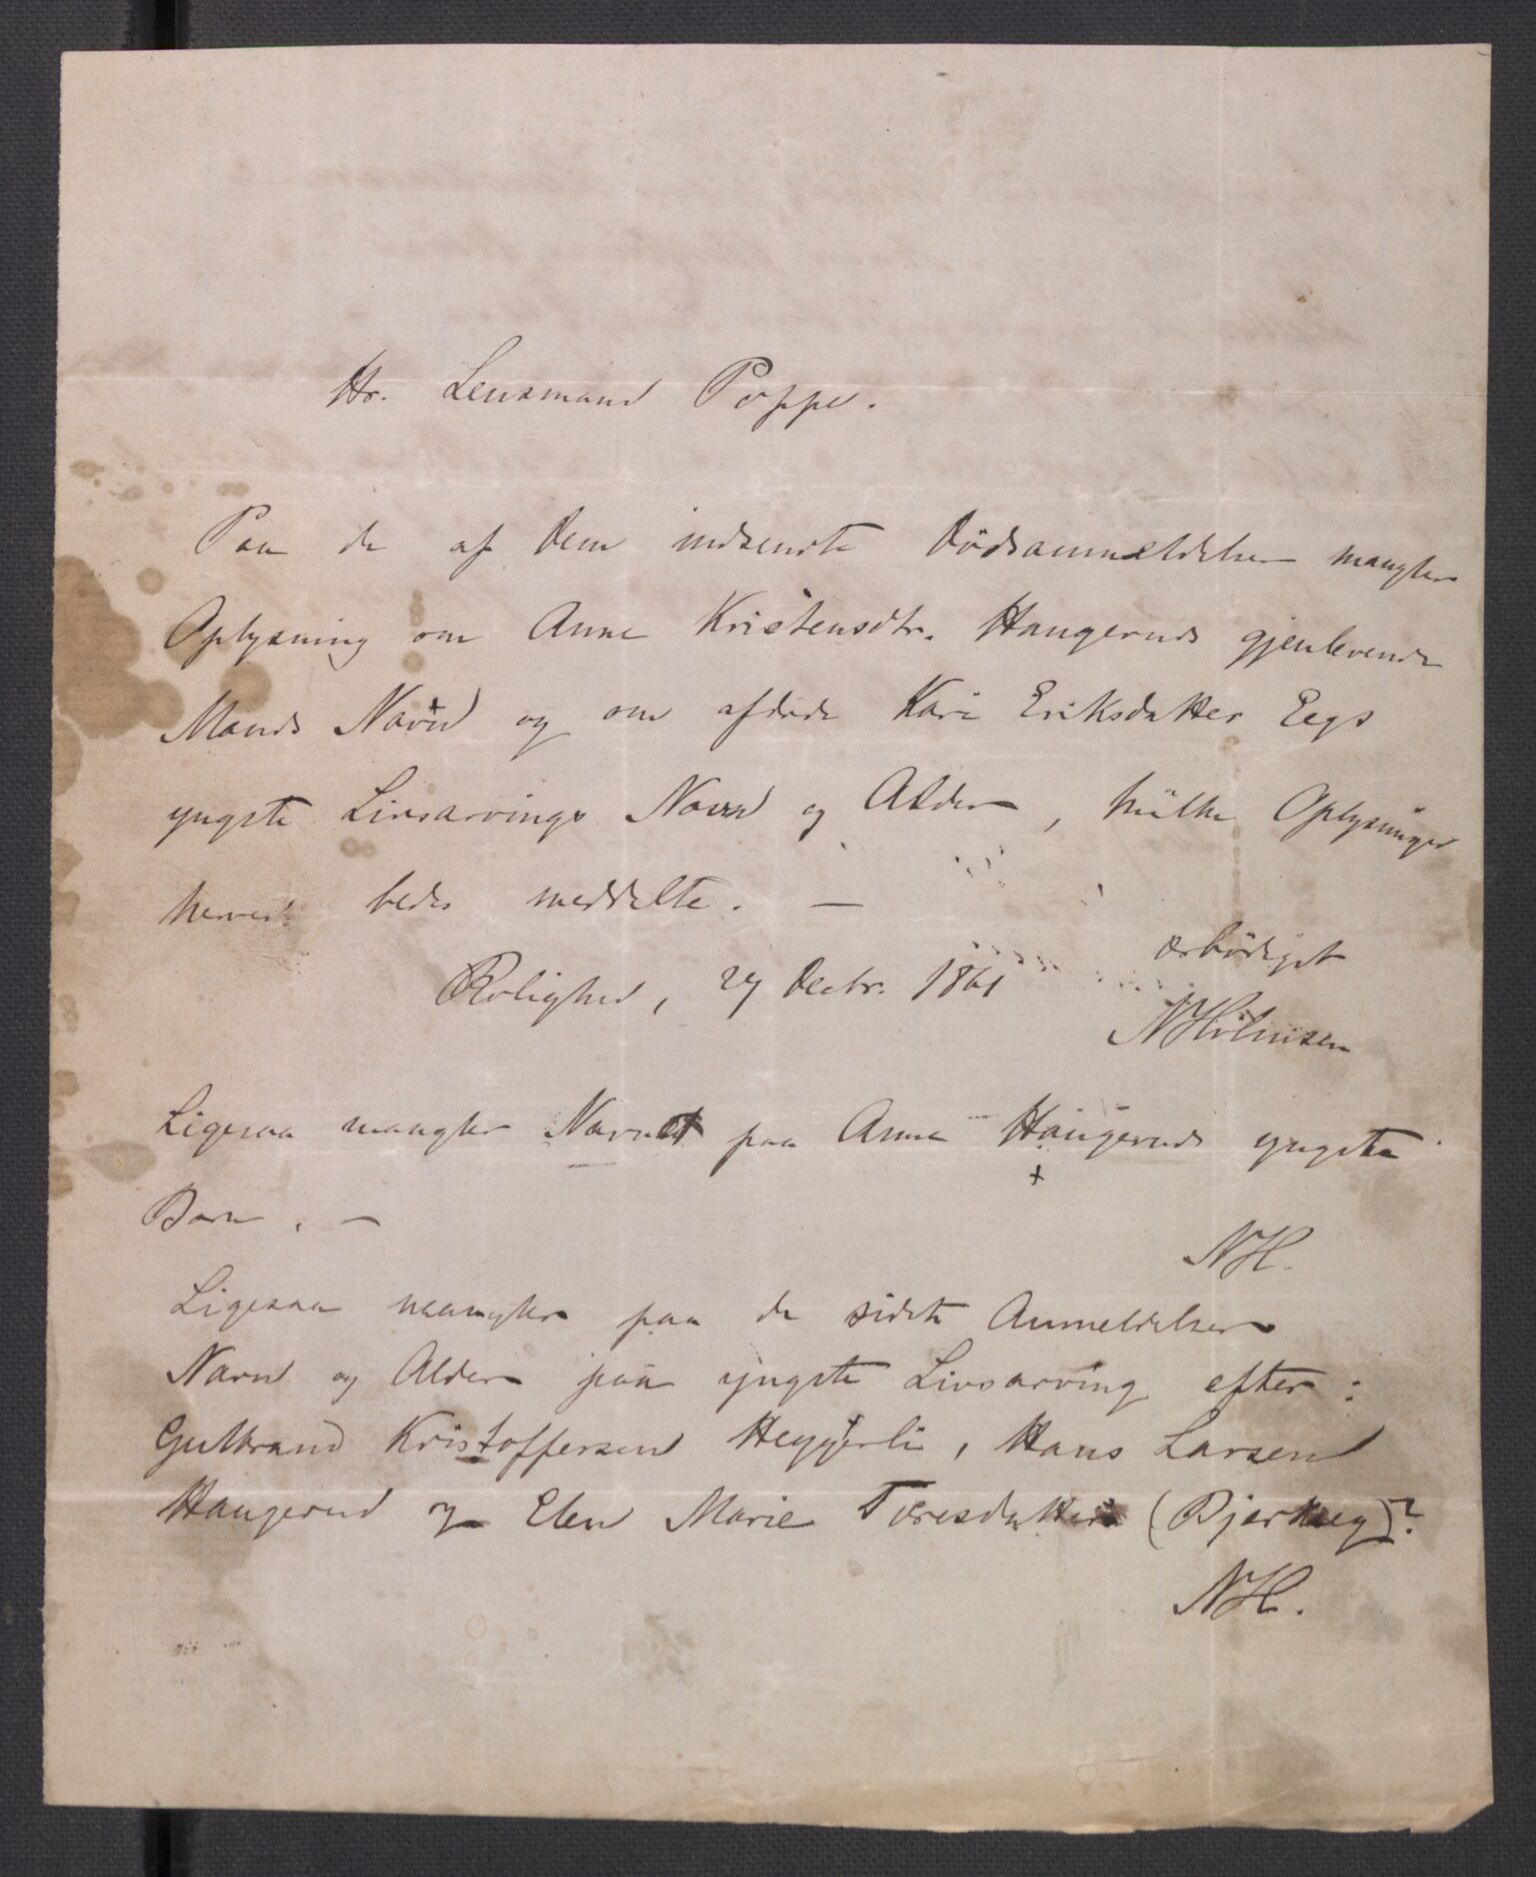 Hr. Lensmand Poppe.
Paa de af Dem indsendte Dödsanmeldelser mangler
Oplysning om Anne Kristensdtr. Haugeruds gjenlevende
Mands Navn og om afdøde Kari Eriksdatter Eegs
yngste Livsarvings Navn og Alder, hvilke Oplysninger
herved bedes meddelte. —
Rolighed, 27 Decbr. 1861
ærbödigst
NHolmsen
Ligesaa mangler Navnet paa Anne Haugeruds yngste
Barn. —
NH.
Ligesaa mangler paa de sidste Anmeldelser
Navn og Alder paa yngste Livsarving efter:
Gulbrand Kristoffersen Heggerli, Hans Larsen
Haugerud og Elen Marie Toresdatter (Bjerkeeg)?
NH.